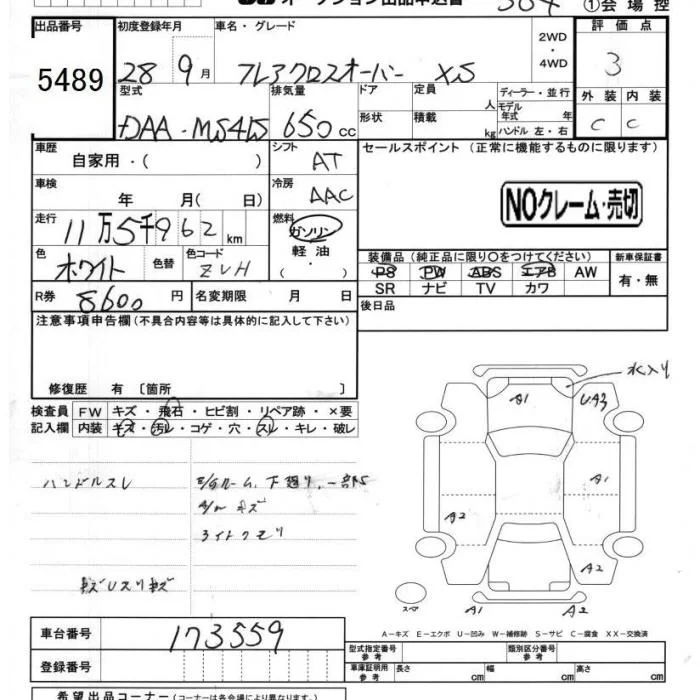 ①会場控
出品番号 初度登録年月 車名・グレード 評価点
5489 28 9月 フレアクロスオーバー XS 2WD ・ 4WD 3
型式 排気量 ドア 定員 人 ディーラー・並行 外装 内装
DAA-MS41S 650cc 形状 積載 kg モデル年式 年 ハンドル 左・右 C C
車歴 自家用・( ) シフト AT セールスポイント (正常に機能するものに限ります)
車検 年 月( 日) 冷房 AAC
NOクレーム・売切
走行 11万5千962km 燃料 ガソリン 軽油
色 ホワイト 色替 色コード ZVH
装備品(純正品に限り○をつけてください) 新車保証書
PS PW ABS エアB AW 有・無
SR ナビ TV カワ
R券 8600円 名変期限 月 日 後日品
注意事項申告欄(不具合内容等は具体的に記入して下さい)
修復歴 有〔箇所 〕
検査員 FW キズ・飛石・ヒビ割・リペア跡・×要
記入欄 内装 キズ・汚レ・コゲ・穴・スレ・キレ・破レ
水入り
A1 U.A3
A1
A2
A2
A1 A2
スペア
ハンドルスレ
下廻り、一部S
キズ
ライトクモリ
A-キズ E-エクボ U-凹み W-補修跡 S-サビ C-腐食 XX-交換済
車台番号 173559
登録番号
型式指定番号 参考 類別区分番号 参考
車庫証明用 参考 長さ cm 幅 cm 高さ cm
希望出品コーナー(コーナーは各会場により異なります)